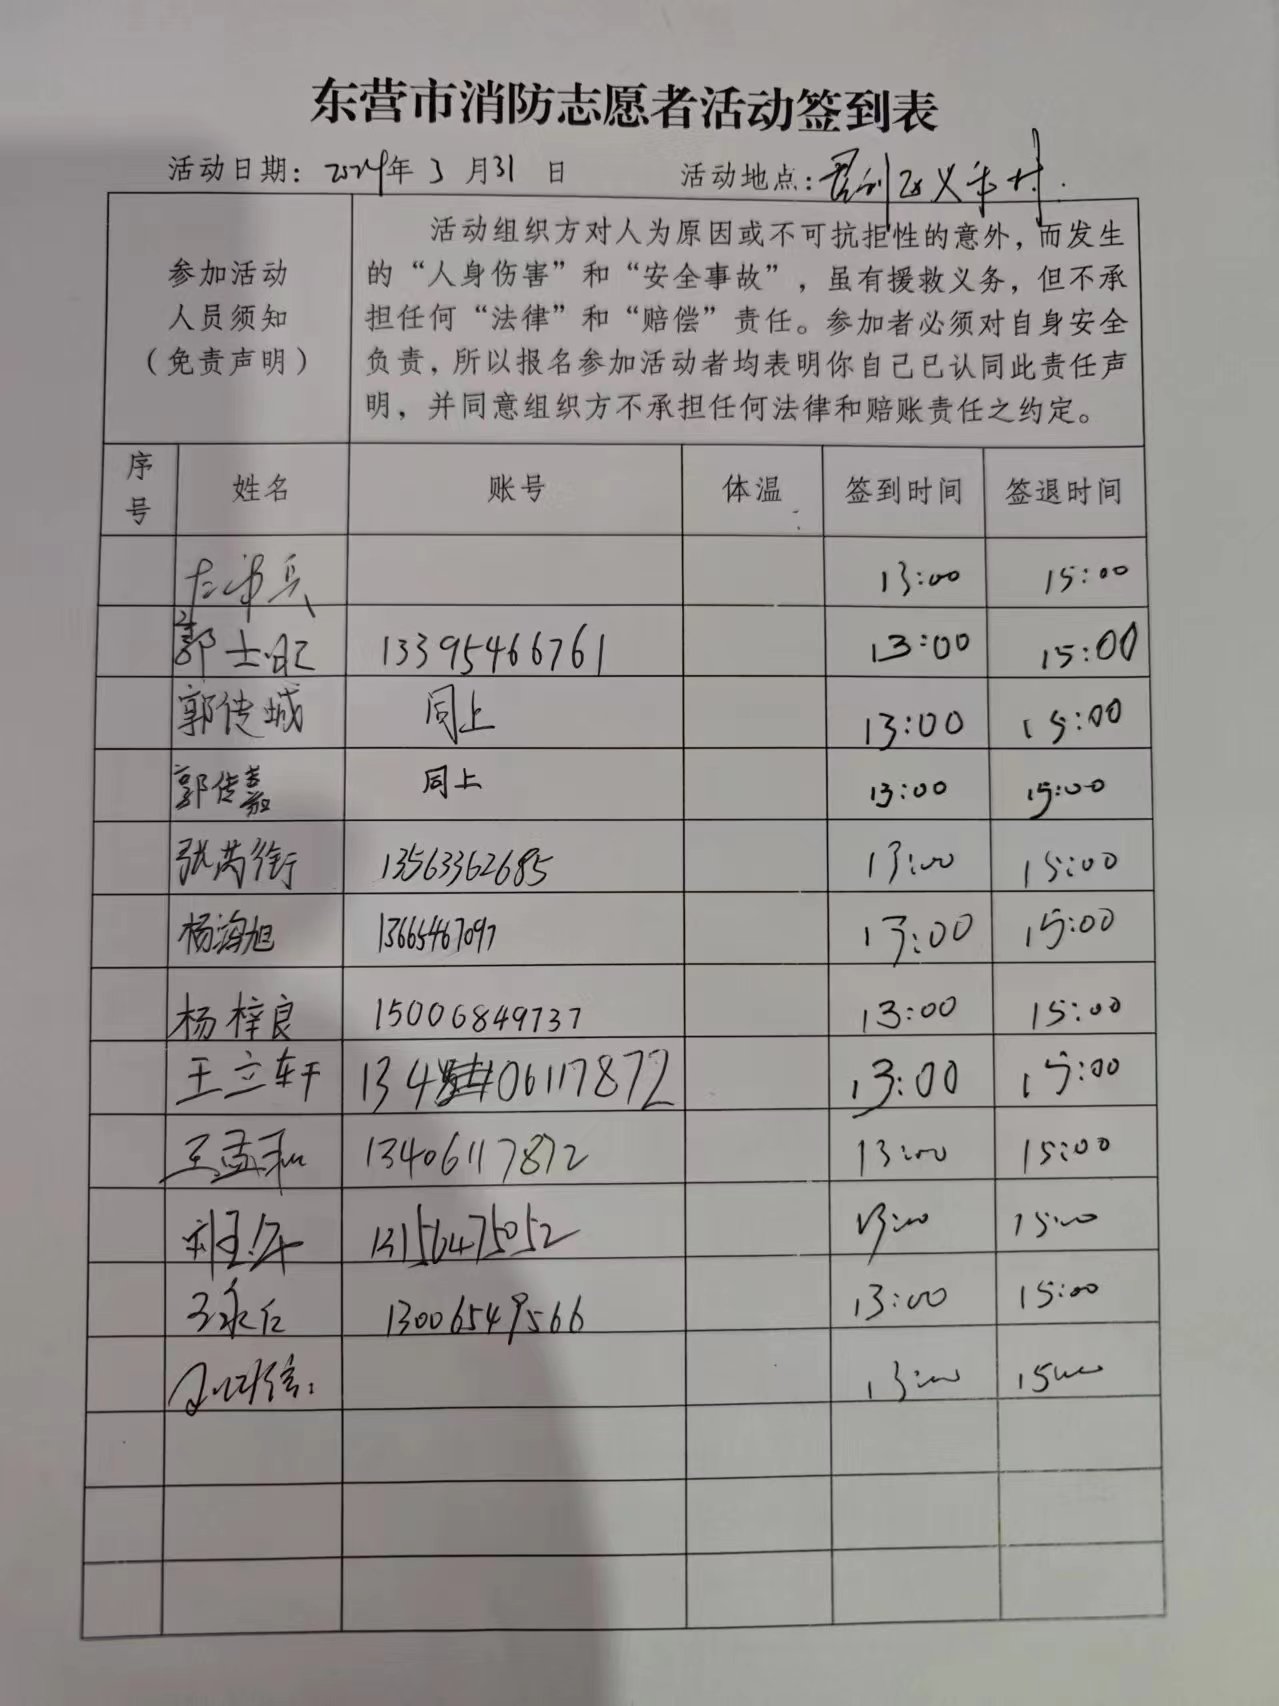 东营市消防志愿者活动签到表
活动日期：2024年3月31日 活动地点：垦利区义和村.
参加活动
人员须知
（免责声明）
活动组织方对人为原因或不可抗拒性的意外，而发生
的“人身伤害”和“安全事故”，虽有援救义务，但不承
担任何“法律”和“赔偿”责任。参加者必须对自身安全
负责，所以报名参加活动者均表明你自己已认同此责任声
明，并同意组织方不承担任何法律和赔账责任之约定。
序号 姓名 账号 体温 签到时间 签退时间
13:00 15:00
郭士旺 13395466761 13:00 15:00
郭传城 同上 13:00 15:00
郭传嘉 同上 13:00 15:00
张芮衔 13563362685 13:00 15:00
杨海旭 13665467097 13:00 15:00
杨梓良 15006849737 13:00 15:00
王立轩 13406117872 13:00 15:00
王孟和 13406117872 13:00 15:00
13156475052 13:00 15:00
王永仁 13006549566 13:00 15:00
13:00 15:00